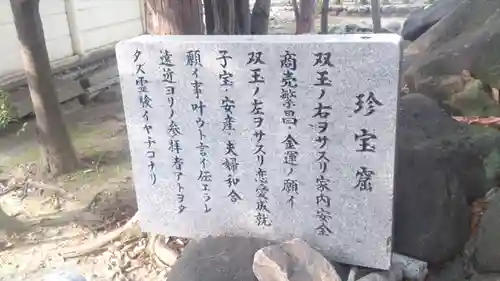 珍宝窟
双玉ノ右ヲサスリ家内安全
商売繁昌・金運ノ願イ
双玉ノ左ヲサスリ恋愛成就
子宝・安産・夫婦和合
願イ事叶ウト言イ伝エラレ
遠近ヨリノ参拝者アトヲタ
タズ霊験イヤチコナリ